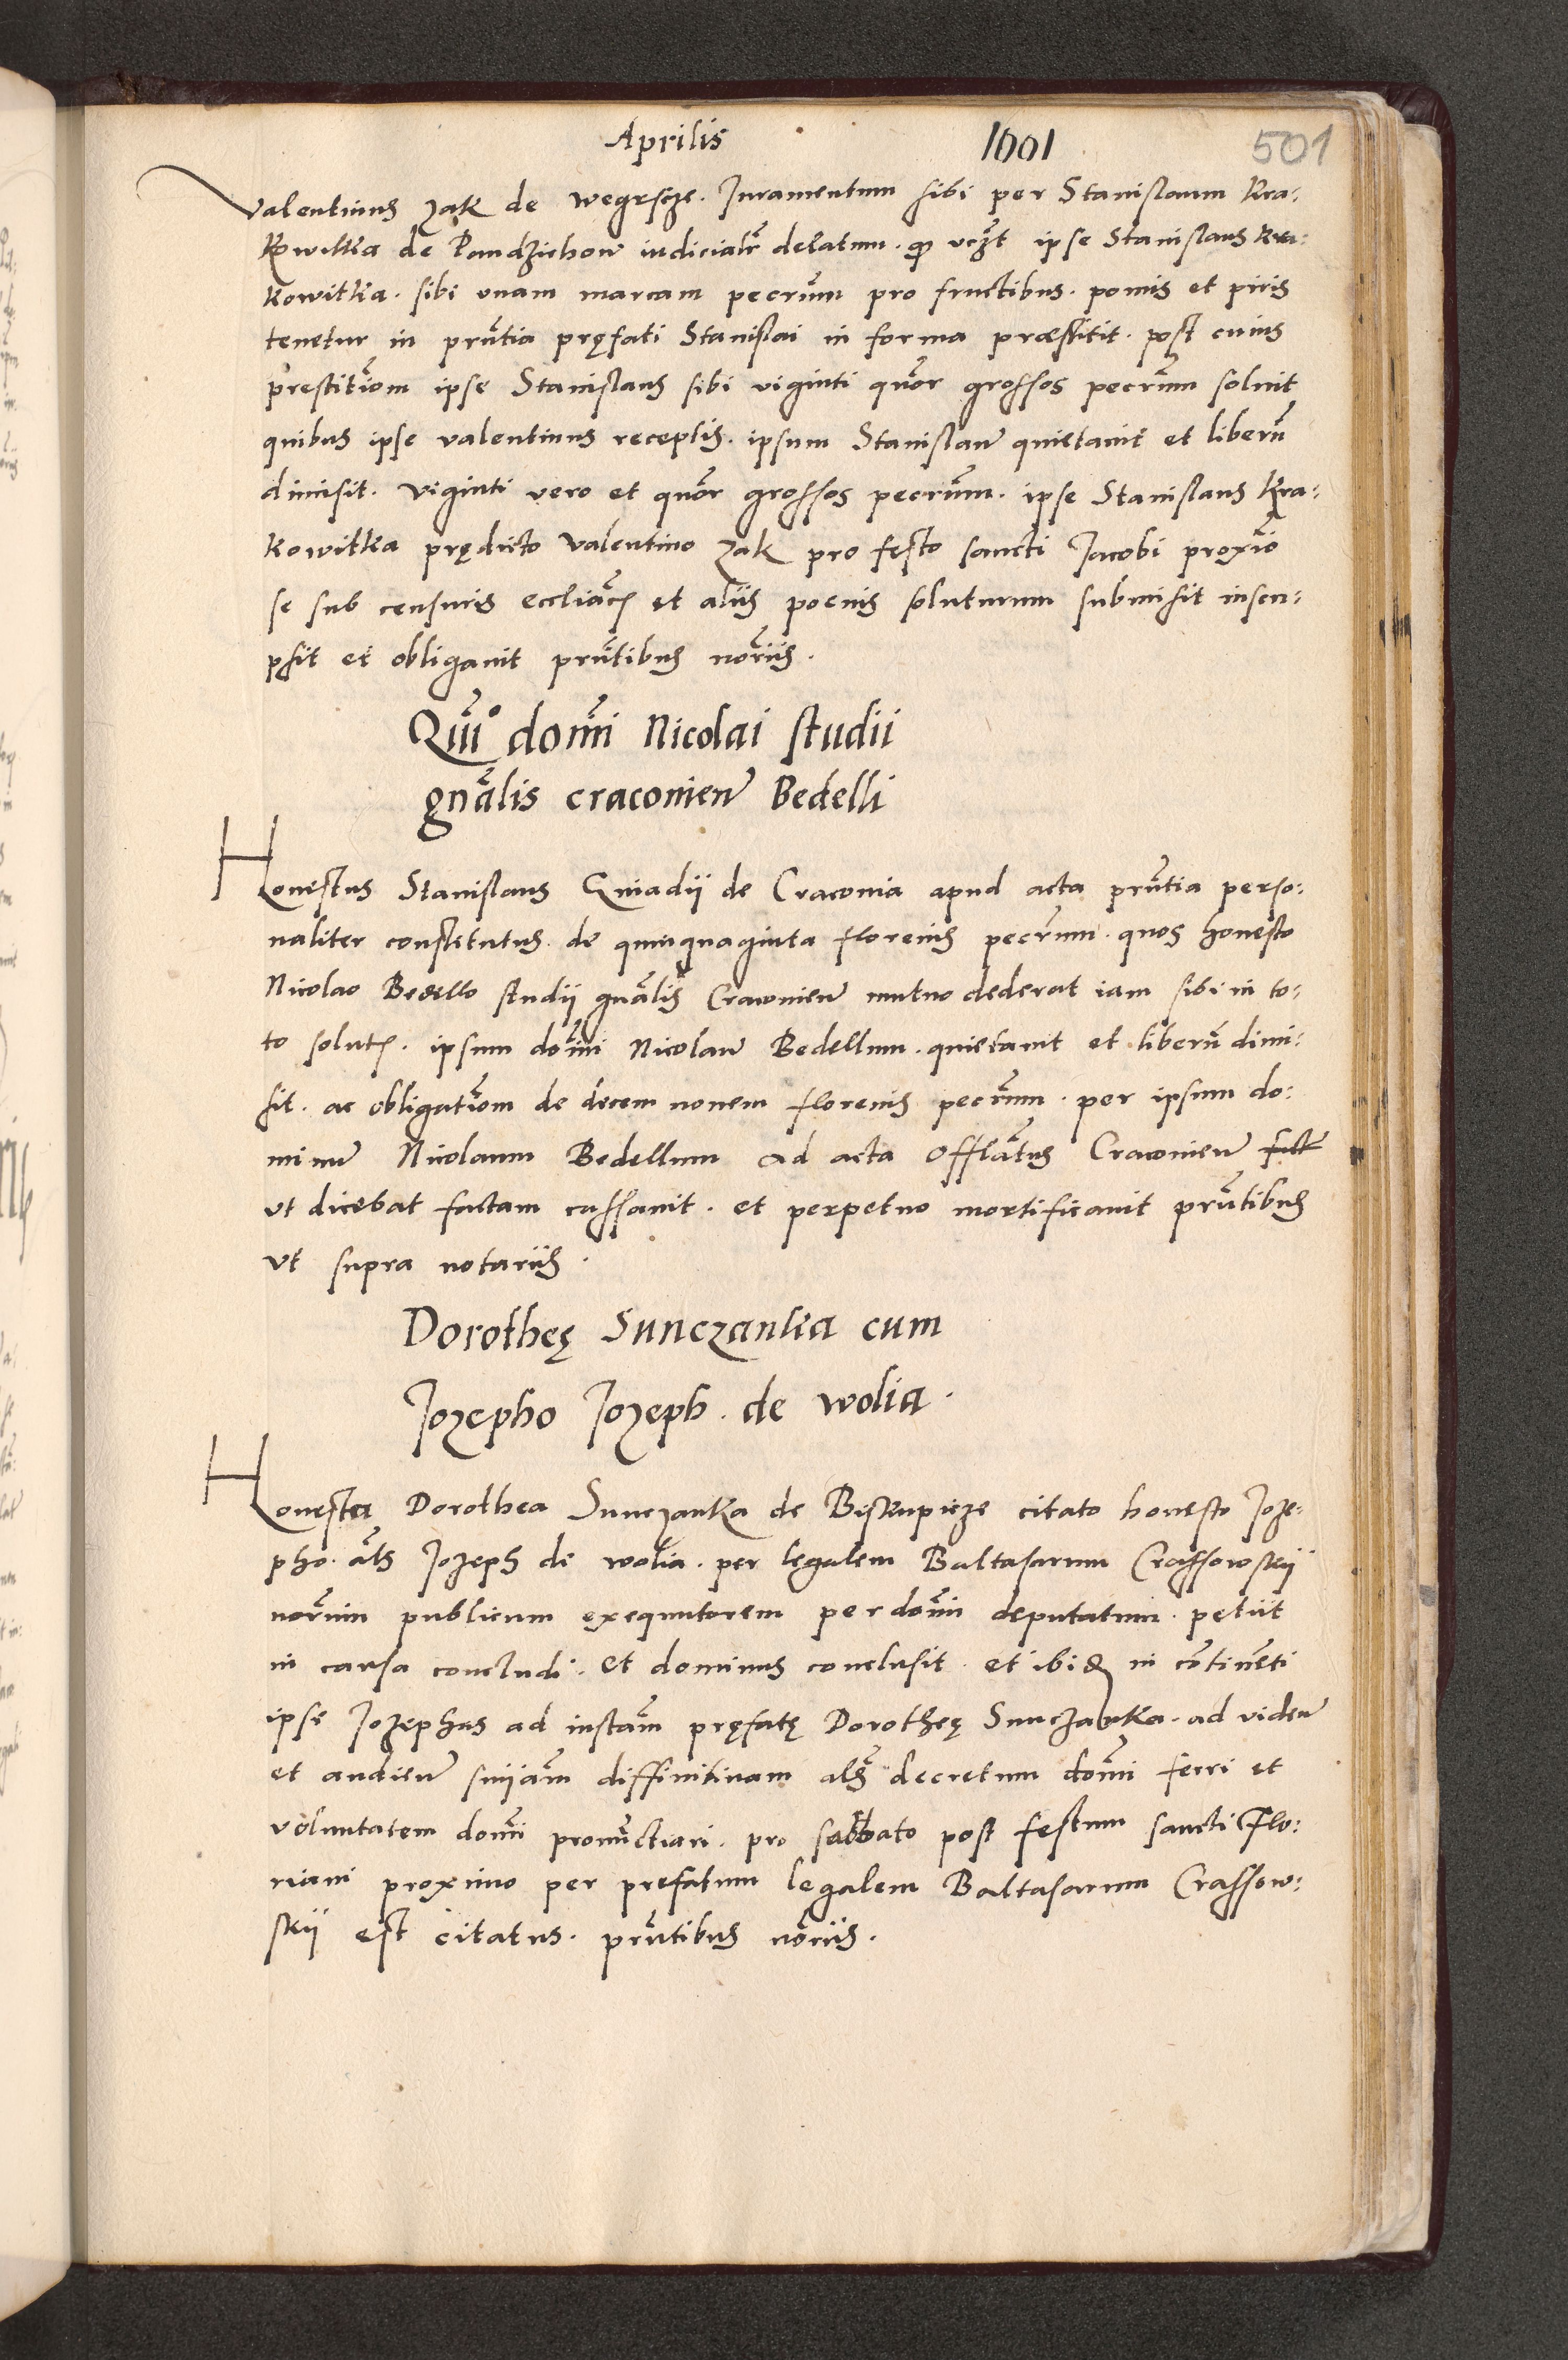 Aprilis 1001 501
Valentinus Zak de Wegrscze. Iuramentum sibi per Stanislaum Kra:
kowitka de Pandzichow iudicialr̃ delatum. qz vcz̃t ipse Stanislaus Kra:
kowitka. sibi vnam marcam pecr̃um pro fructibus. pomis et piris
tenetur in prñtia pręfati Stanislai in forma præstitit. post cuius
prestitiõem ipse Stanislaus sibi viginti quõr grossos pecr̃um soluit
quibus ipse Valentinus receptis. ipsum Stanislaũ quietauit et liberũ
dimisit. Viginti vero et quõr grossos pecr̃um. ipse Stanislaus Kra:
kowitka prędicto Valentino Zak pro festo sancti Iacobi proxĩo
se sub censuris eccliãcȝ et aliis poenis soluturum submisit inscri:
psit et obligauit prñtibus noriis.
Quĩ° domĩ Nicolai studii
gnãlis craconieñ Bedelli
Honestus Stanislaus Gniadii de Craconia apud acta prñtia perso:
naliter constitutus. de quinquaginta florenis pecr̃um. quos honesto
Nicolao Bedello studii gnãlis Craconieñ mutuo dederat iam sibi in to:
to solutȝ. ipsum domĩ Nicolaũ Bedellum. quietauit et liberũ dimi:
sit. ac obligatiõem de decem nouem florenis pecr̃um. per ipsum do:
minũ Nicolaum Bedellum ad acta Offlãtus Craconieñ fact
vt dicebat factam cassauit. et perpetuo mortificauit prñtibus
vt supra notariis.
Dorotheę Sunczanka cum
Iozepho Iozeph. de Wolia.
Honesta Dorothea Sunczanka de Biskupicze citato honesto Ioze:
pho. als̃ Iozeph de Wolia. per legalem Baltasarum Crassowskij
norium publicum exequutorem per domĩ deputatum. petiit
in causa concludi. et dominus conclusit. et ibidȝ in cõtinẽti
ipse Iozephus ad instãm pręfatę Dorotheę Sunczanka. ad videñ
et audieñ sniãm diffinitiuam als̃ decretum domĩ ferri et
voluntatem domĩ pronũctiari. pro sabbato post festum sancti Flo:
riani proximo per prefatum legalem Baltasarum Crassow:
skij est citatus. prñtibus noriis.